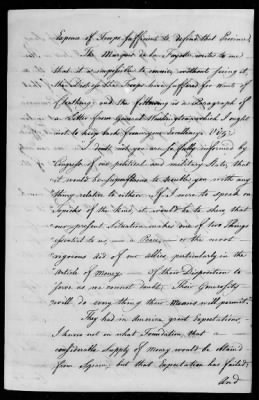 Expence of Troops sufficient to defend that Province.
The Marquis de la Fayette writes to me
that it is impossible to conceive, without seeing it,
the Distress the Troops have suffered for Want of
Cloathing; and the following is a Paragraph of
a Letter from General Washington, which I ought
not to keep back from your Excellency. Viz;
I doubt not, you are so fully informed by
Congress of our political and military State, that
it would be superfluous to trouble you with any
thing relative to either. If I were to speak on
Topicks of the Kind, it would be to shew that
our present Situation makes one of two Things
essential to us — a Peace — or the most
vigorous aid of our allies, particularly in the
Article of Money — Of their Disposition to
serve us we cannot doubt; Their Generosity
will do every thing their Means will permit.
They had in America great Expectations,
I know not on what Foundation, that a
considerable Supply of Money would be obtained
from Spain; but that Expectation has failed;
And